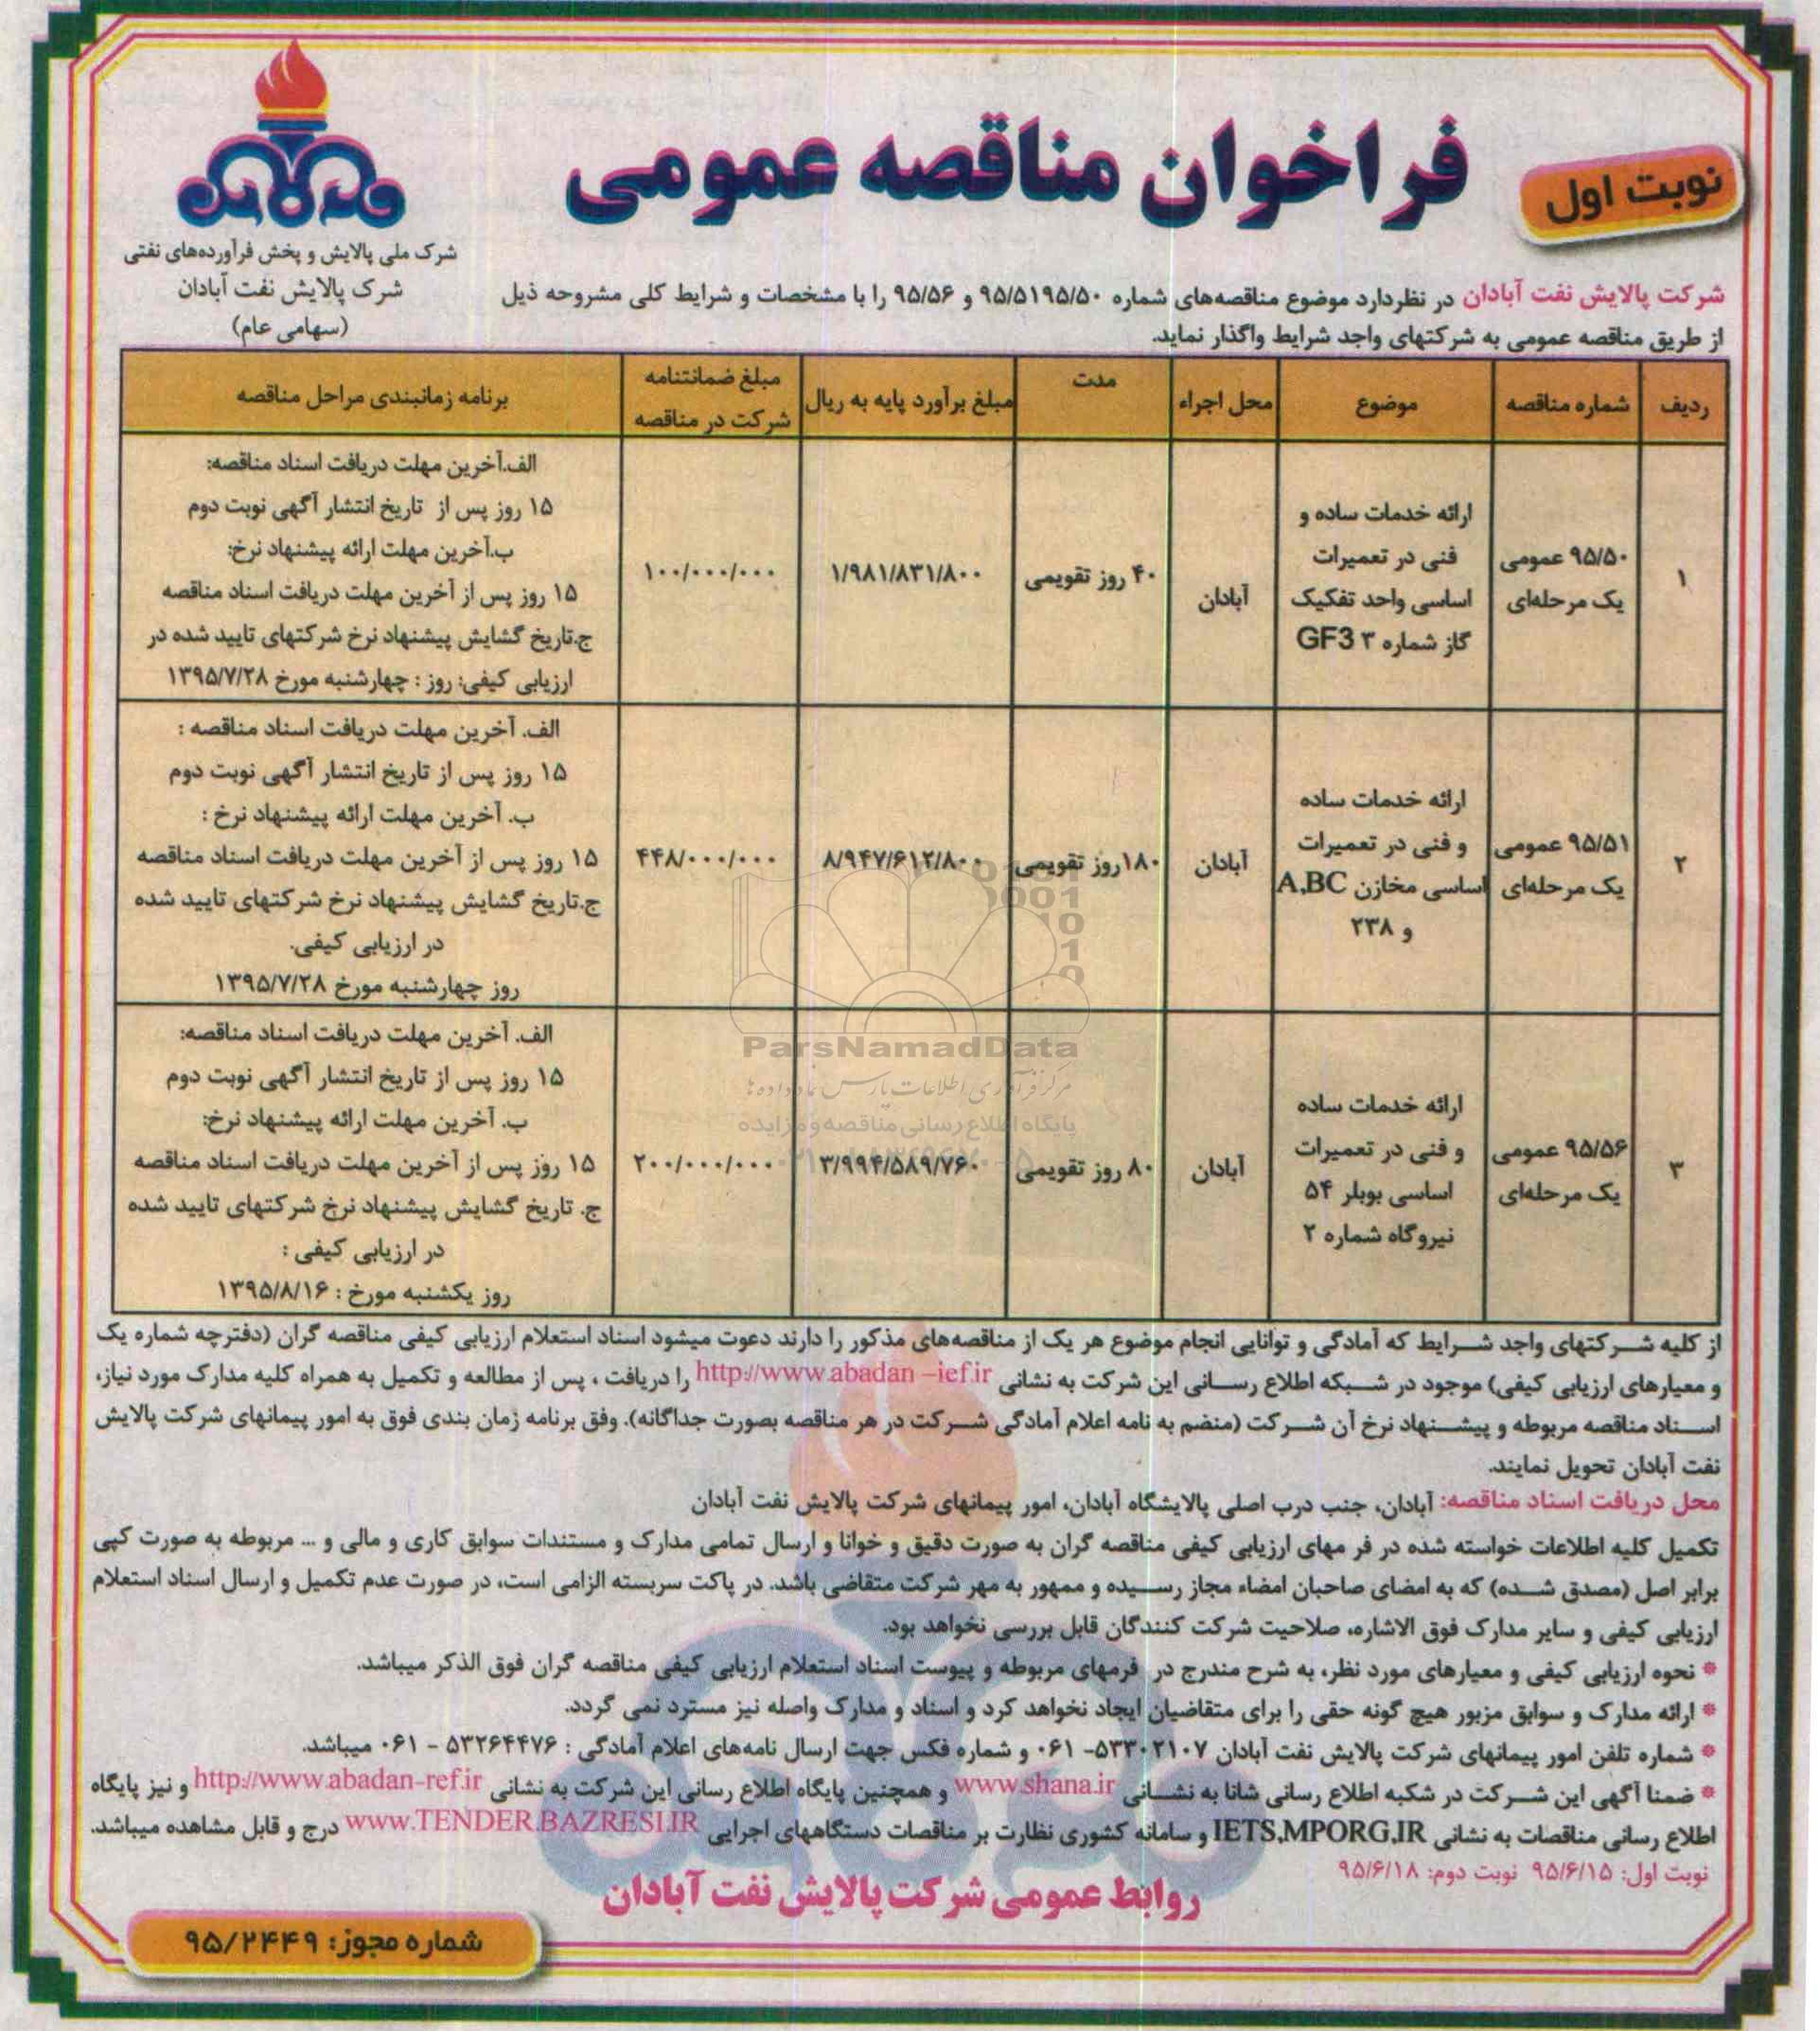 نوبت اول
فراخوان مناقصه عمومی
شرکت ملی پالایش و پخش فرآورده‌های نفتی
شرکت پالایش نفت آبادان
(سهامی عام)
شرکت پالایش نفت آبادان در نظردارد موضوع مناقصه‌های شماره ۹۵/۵۱۹۵/۵۰ و ۹۵/۵۶ را با مشخصات و شرایط کلی مشروحه ذیل
از طریق مناقصه عمومی به شرکتهای واجد شرایط واگذار نماید.
ردیف
شماره مناقصه
موضوع
محل اجراء
مدت
مبلغ برآورد پایه به ریال
مبلغ ضمانتنامه
شرکت در مناقصه
برنامه زمانبندی مراحل مناقصه
۱
۹۵/۵۰ عمومی
یک مرحله‌ای
ارائه خدمات ساده و
فنی در تعمیرات
اساسی واحد تفکیک
گاز شماره ۳ GF3
آبادان
۴۰ روز تقویمی
۱/۹۸۱/۸۳۱/۸۰۰
۱۰۰/۰۰۰/۰۰۰
الف.آخرین مهلت دریافت اسناد مناقصه:
۱۵ روز پس از تاریخ انتشار آگهی نوبت دوم
ب.آخرین مهلت ارائه پیشنهاد نرخ:
۱۵ روز پس از آخرین مهلت دریافت اسناد مناقصه
ج.تاریخ گشایش پیشنهاد نرخ شرکتهای تایید شده در
ارزیابی کیفی: روز : چهارشنبه مورخ ۱۳۹۵/۷/۲۸
۲
۹۵/۵۱ عمومی
یک مرحله‌ای
ارائه خدمات ساده
و فنی در تعمیرات
اساسی مخازن A,BC
و ۲۳۸
آبادان
۱۸۰روز تقویمی
۸/۹۴۷/۶۱۲/۸۰۰
۴۴۸/۰۰۰/۰۰۰
الف. آخرین مهلت دریافت اسناد مناقصه :
۱۵ روز پس از تاریخ انتشار آگهی نوبت دوم
ب. آخرین مهلت ارائه پیشنهاد نرخ :
۱۵ روز پس از آخرین مهلت دریافت اسناد مناقصه
ج.تاریخ گشایش پیشنهاد نرخ شرکتهای تایید شده
در ارزیابی کیفی.
روز چهارشنبه مورخ ۱۳۹۵/۷/۲۸
۳
۹۵/۵۶ عمومی
یک مرحله‌ای
ارائه خدمات ساده
و فنی در تعمیرات
اساسی بویلر ۵۴
نیروگاه شماره ۲
آبادان
۸۰ روز تقویمی
۳/۹۹۴/۵۸۹/۷۶۰
۲۰۰/۰۰۰/۰۰۰
الف. آخرین مهلت دریافت اسناد مناقصه:
۱۵ روز پس از تاریخ انتشار آگهی نوبت دوم
ب. آخرین مهلت ارائه پیشنهاد نرخ:
۱۵ روز پس از آخرین مهلت دریافت اسناد مناقصه
ج. تاریخ گشایش پیشنهاد نرخ شرکتهای تایید شده
در ارزیابی کیفی :
روز یکشنبه مورخ : ۱۳۹۵/۸/۱۶
ParsNamadData
مرکز فرآوری اطلاعات پارس نماد داده ها
پایگاه اطلاع رسانی مناقصه و مزایده
از کلیه شرکتهای واجد شرایط که آمادگی و توانایی انجام موضوع هر یک از مناقصه‌های مذکور را دارند دعوت میشود اسناد استعلام ارزیابی کیفی مناقصه گران (دفترچه شماره یک
و معیارهای ارزیابی کیفی) موجود در شبکه اطلاع رسانی این شرکت به نشانی http://www.abadan –ief.ir را دریافت ، پس از مطالعه و تکمیل به همراه کلیه مدارک مورد نیاز،
اسناد مناقصه مربوطه و پیشنهاد نرخ آن شرکت (منضم به نامه اعلام آمادگی شرکت در هر مناقصه بصورت جداگانه). وفق برنامه زمان بندی فوق به امور پیمانهای شرکت پالایش
نفت آبادان تحویل نمایند.
محل دریافت اسناد مناقصه: آبادان، جنب درب اصلی پالایشگاه آبادان، امور پیمانهای شرکت پالایش نفت آبادان
تکمیل کلیه اطلاعات خواسته شده در فر مهای ارزیابی کیفی مناقصه گران به صورت دقیق و خوانا و ارسال تمامی مدارک و مستندات سوابق کاری و مالی و ... مربوطه به صورت کپی
برابر اصل (مصدق شده) که به امضای صاحبان امضاء مجاز رسیده و ممهور به مهر شرکت متقاضی باشد. در پاکت سربسته الزامی است، در صورت عدم تکمیل و ارسال اسناد استعلام
ارزیابی کیفی و سایر مدارک فوق الاشاره، صلاحیت شرکت کنندگان قابل بررسی نخواهد بود.
* نحوه ارزیابی کیفی و معیارهای مورد نظر، به شرح مندرج در فرمهای مربوطه و پیوست اسناد استعلام ارزیابی کیفی مناقصه گران فوق الذکر میباشد.
* ارائه مدارک و سوابق مزبور هیچ گونه حقی را برای متقاضیان ایجاد نخواهد کرد و اسناد و مدارک واصله نیز مسترد نمی گردد.
* شماره تلفن امور پیمانهای شرکت پالایش نفت آبادان ۵۳۳۰۲۱۰۷- ۰۶۱ و شماره فکس جهت ارسال نامه‌های اعلام آمادگی : ۵۳۲۶۴۴۷۶ - ۰۶۱ میباشد.
* ضمنا آگهی این شرکت در شکبه اطلاع رسانی شانا به نشانی www.shana.ir و همچنین پایگاه اطلاع رسانی این شرکت به نشانی http://www.abadan-ref.ir و نیز پایگاه
اطلاع رسانی مناقصات به نشانی IETS,MPORG,IR و سامانه کشوری نظارت بر مناقصات دستگاههای اجرایی www.TENDER.BAZRESI.IR درج و قابل مشاهده میباشد.
نوبت اول: ۹۵/۶/۱۵ نوبت دوم: ۹۵/۶/۱۸
روابط عمومی شرکت پالایش نفت آبادان
شماره مجوز: ۹۵/۲۴۴۹